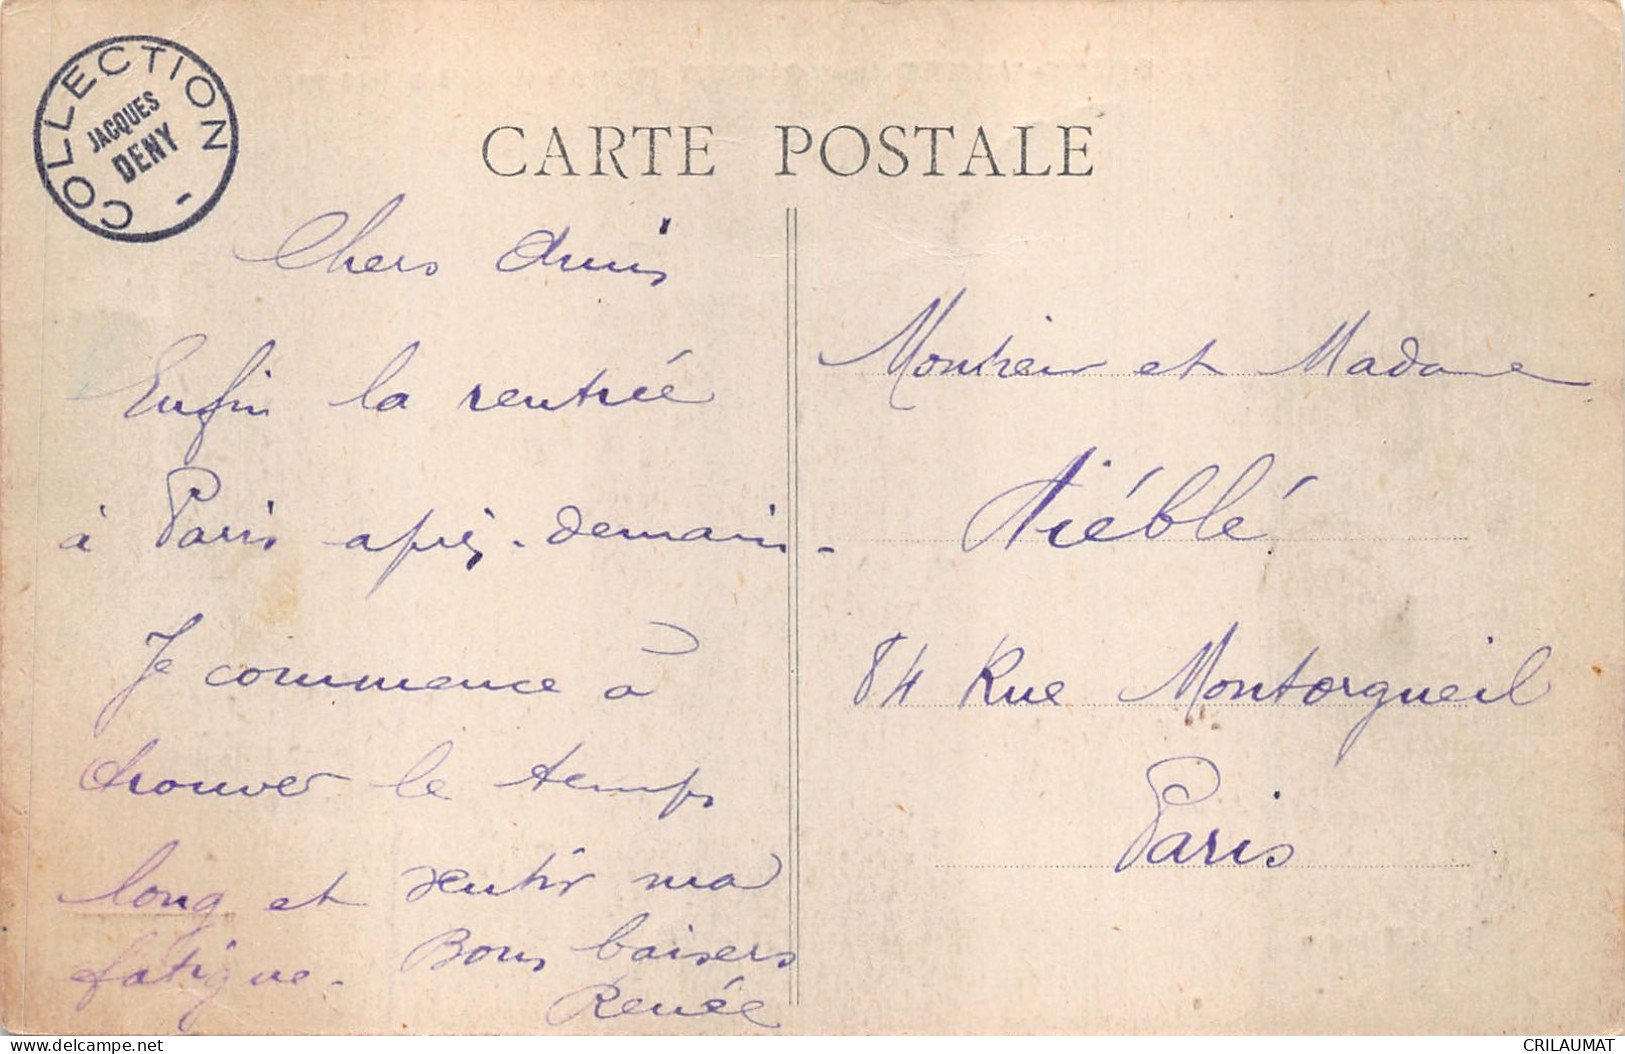 COLLECTION
JACQUES
DENY
CARTE POSTALE
Chers Amis
Enfin la rentrée
à Paris après-demain-
Je commence à
trouver le temps
long et sentir ma
fatigue.
Bons baisers
Renée
Monsieur et Madame
Niéblé
84 Rue Montorgueil
Paris
www.delcampe.net
CRILAUMAT